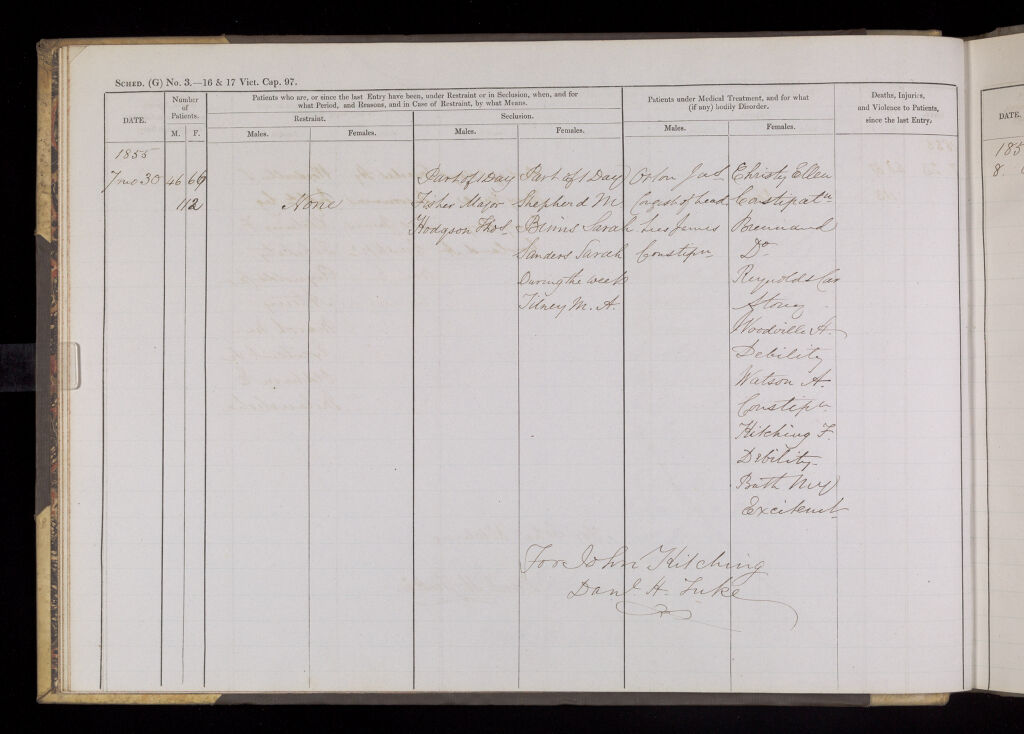 SCHED. (G) No. 3.—16 & 17 Vict. Cap. 97.
DATE.
Number of Patients.
M. F.
Patients who are, or since the last Entry have been, under Restraint or in Seclusion, when, and for
what Period, and Reasons, and in Case of Restraint, by what Means.
Restraint.
Males. Females.
Seclusion.
Males. Females.
Patients under Medical Treatment, and for what
(if any) bodily Disorder.
Males. Females.
Deaths, Injuries,
and Violence to Patients,
since the last Entry.
1855
7 mo 30 46 66
112
None
Part of 1 Day
Fisher Major
Hodgson Thos.
Part of 1 Day
Shepherd M
Binns Sarah
Sanders Sarah
During the week
Tidney M. A.
Orton Jas
Congest of head
Lees James
Constipn
Christy Ellen
Constipatn
Brennand
Do
Reynolds Car
Woodville A.
Debility
Watson A.
Constipn
Kitching F.
Debility
Bath My
Excitemt
For John Kitching
Danl. H. Tuke
DATE.
185
8.